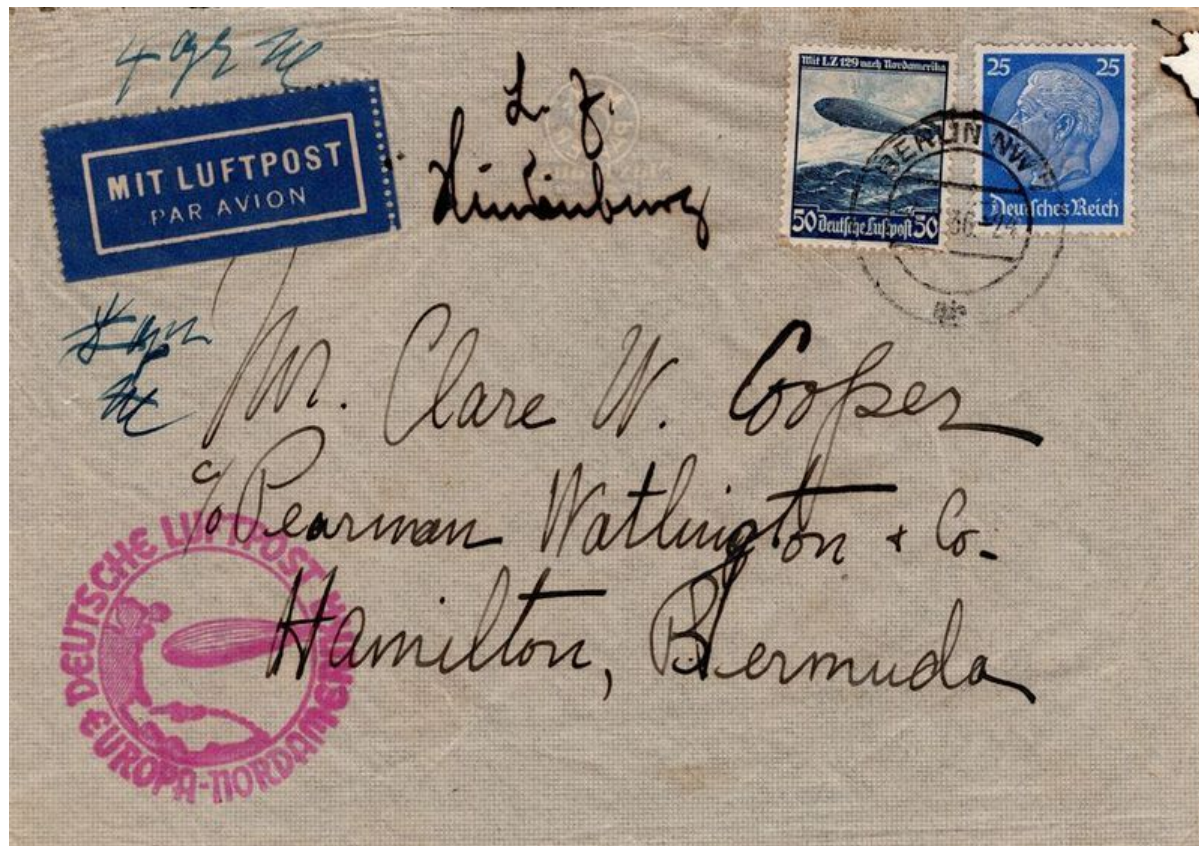 4 gr
MIT LUFTPOST
PAR AVION
L. Z.
Hindenburg
Mit LZ 129 nach Nordamerika
50 Deutsche Luftpost 50
25 25
Deutsches Reich
BERLIN NW
36.-24
Mr. Clare W. Cooper
c/o Pearman Watlington & Co.
Hamilton, Bermuda
DEUTSCHE LUFTPOST
EUROPA-NORDAMERIKA